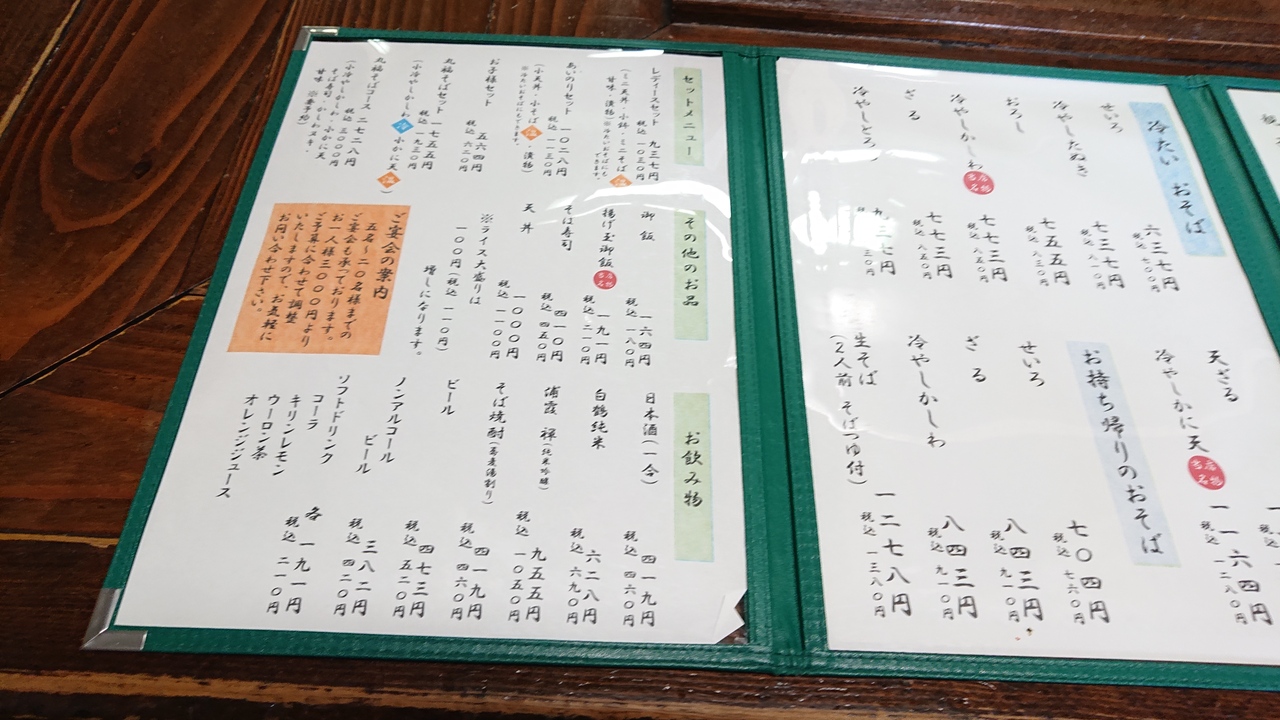 冷たい おそば
せいろ
六三七円
税込 七〇〇円
冷やしたぬき
七三七円
税込 八一〇円
おろし
七五五円
税込 八三〇円
冷やしかしわ
当店名物
七七三円
税込 八五〇円
ざる
七七三円
税込 八五〇円
冷やしとろろ
天ざる
冷やしかに天
当店名物
一一六四円
税込 一二八〇円
お持ち帰りのおそば
せいろ
七〇四円
税込 七六〇円
ざる
八四三円
税込 九一〇円
冷やしかしわ
八四三円
税込 九一〇円
生そば
(2人前 そばつゆ付)
一二七八円
税込 一三八〇円
セットメニュー
レディースセット
九三七円
税込 一〇三〇円
(ミニ天丼・小鉢・ミニそば 温
甘味・漬物)※冷たいおそばにも
できます。
あいのりセット
一〇二八円
税込 一一三〇円
(小天丼・小そば 温・漬物)
※冷たいおそばにもできます。
お子様セット
五六四円
税込 六二〇円
丸福そばセット
一七五五円
税込 一九三〇円
(小冷やしかしわ 冷 小かに天 温)
丸福そばコース
二七二八円
税込 三〇〇〇円
(小冷やしかしわ、小かに天
そば寿司・かしわヌキ、
甘味 ※要予約)
その他のお品
御飯
一六四円
税込 一八〇円
揚げ玉御飯
当店名物
一九一円
税込 二一〇円
そば寿司
四一〇円
税込 四五〇円
天丼
一〇〇〇円
税込 一一〇〇円
※ライス大盛りは
一〇〇円(税込 一一〇円)
増しになります。
ご宴会の案内
五名〜二〇名様までの
ご宴会も承っております。
お一人様三〇〇〇円より
ご予算に合わせて調整
いたしますので、お気軽に
お問い合わせ下さい。
お飲み物
日本酒(一合)
四一九円
税込 四六〇円
白鶴純米
六二八円
税込 六九〇円
浦霞 禅(純米吟醸)
九五五円
税込 一〇五〇円
そば焼酎(蕎麦湯割り)
四一九円
税込 四六〇円
ビール
四七三円
税込 五二〇円
ノンアルコール
ビール
三八二円
税込 四二〇円
ソフトドリンク
コーラ
キリンレモン
ウーロン茶
オレンジジュース
各 一九一円
税込 二一〇円